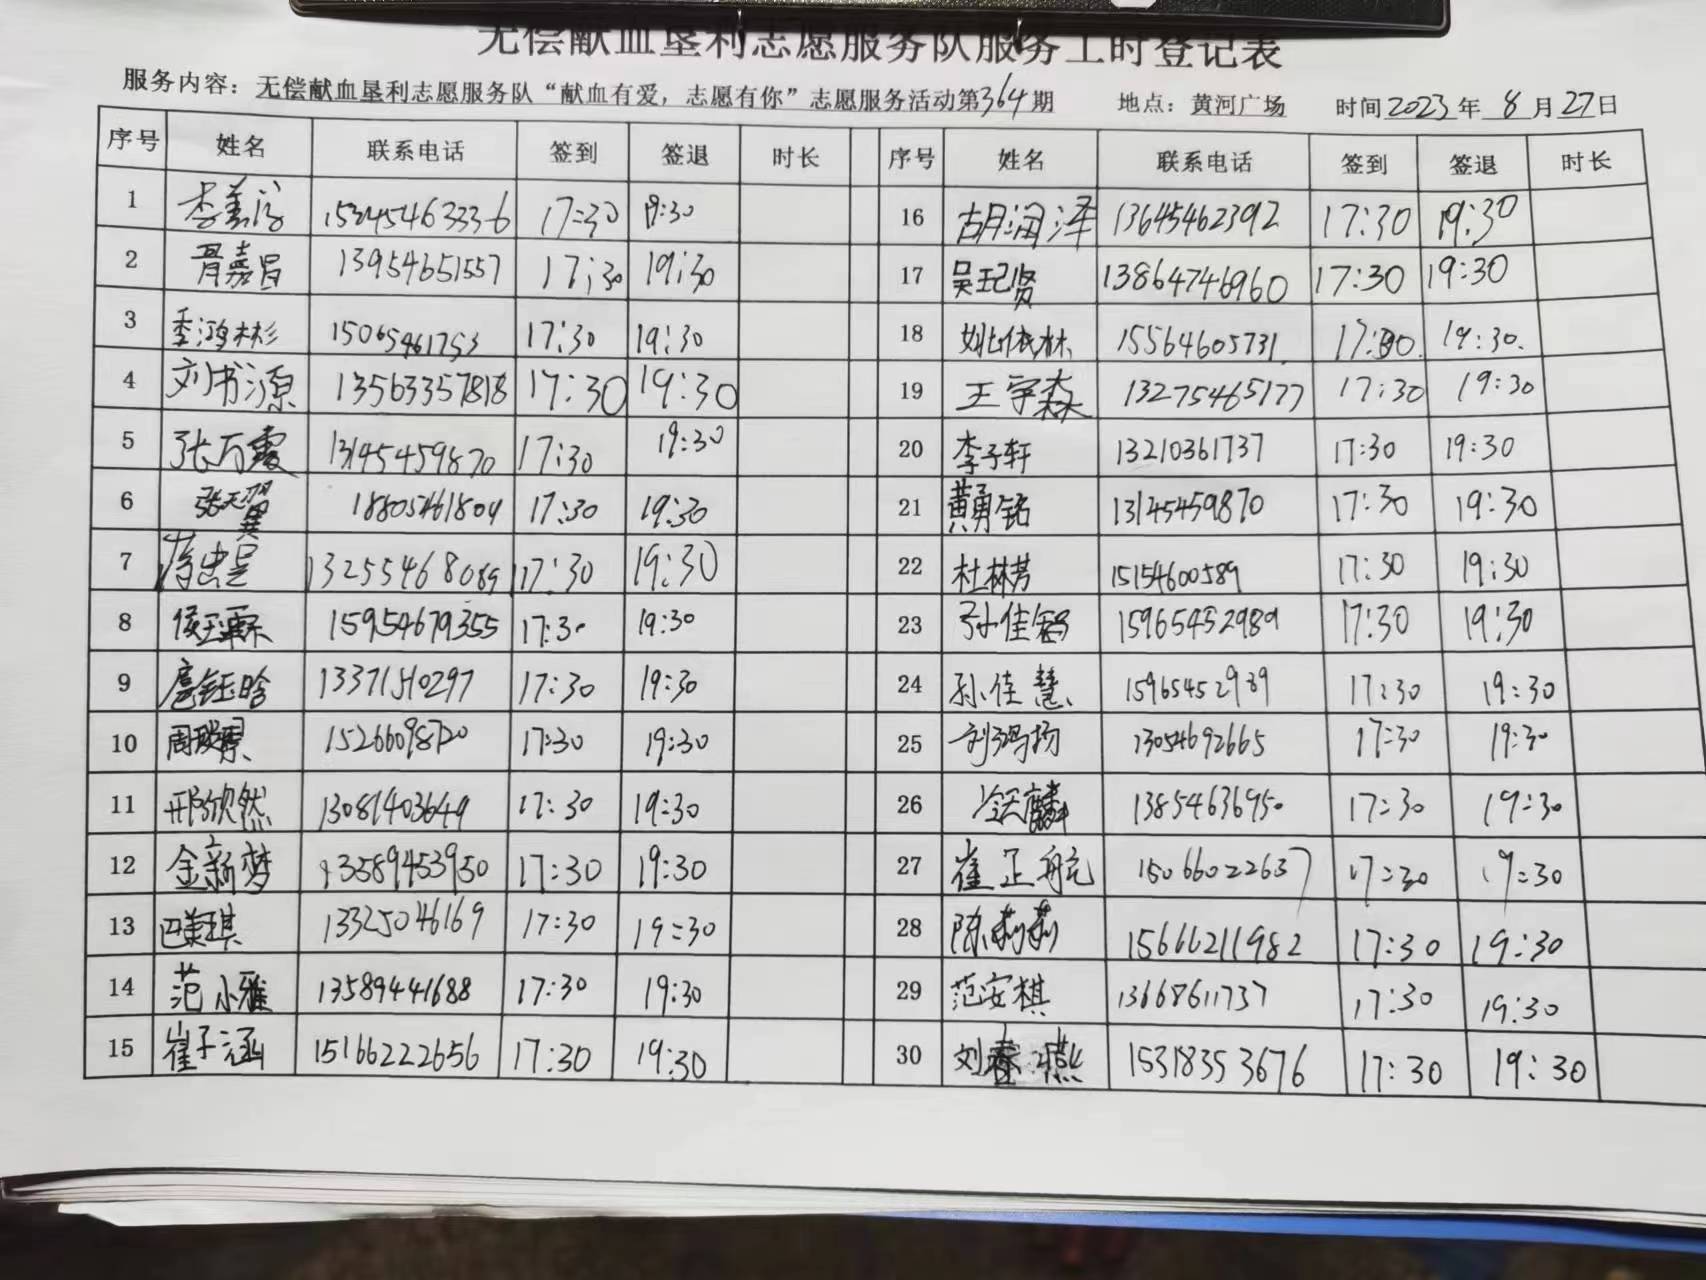 无偿献血垦利志愿服务队服务工时登记表
服务内容：无偿献血垦利志愿服务队“献血有爱，志愿有你”志愿服务活动第364期 地点：黄河广场 时间2023年8月27日
序号 姓名 联系电话 签到 签退 时长 序号 姓名 联系电话 签到 签退 时长
1 15245463336 17:30 19:30 16 胡润泽 13645462392 17:30 19:30
2 胥嘉昌 13954651557 17:30 19:30 17 吴玘贤 13864746960 17:30 19:30
3 季鸿彬 15065461753 17:30 19:30 18 姚依林 15564605731. 17:30. 19:30.
4 刘书源 13563357818 17:30 19:30 19 王宇森 13275465177 17:30 19:30
5 张万霞 13145459870 17:30 19:30 20 李子轩 13210361737 17:30 19:30
6 张天翼 18805461804 17:30 19:30 21 黄勇铭 13145459870 17:30 19:30
7 13255468089 17:30 19:30 22 杜林芳 15154600589 17:30 19:30
8 侯玉霖 15954679355 17:30 19:30 23 孙佳 15965452989 17:30 19:30
9 扈钰晗 13371510297 17:30 19:30 24 孙佳慧 15965452989 17:30 19:30
10 周 15266098720 17:30 19:30 25 刘鸿扬 13054692665 17:30 19:30
11 邢欣然 13081403649 17:30 19:30 26 麟 13854636950 17:30 19:30
12 金新梦 13589453950 17:30 19:30 27 崔正航 15066022637 17:30 19:30
13 巴美琪 13325046169 17:30 19:30 28 陈莉莉 15666211982 17:30 19:30
14 范小雅 13589441688 17:30 19:30 29 范安棋 13668611737 17:30 19:30
15 崔子涵 15166222656 17:30 19:30 30 刘春燕 15318353676 17:30 19:30